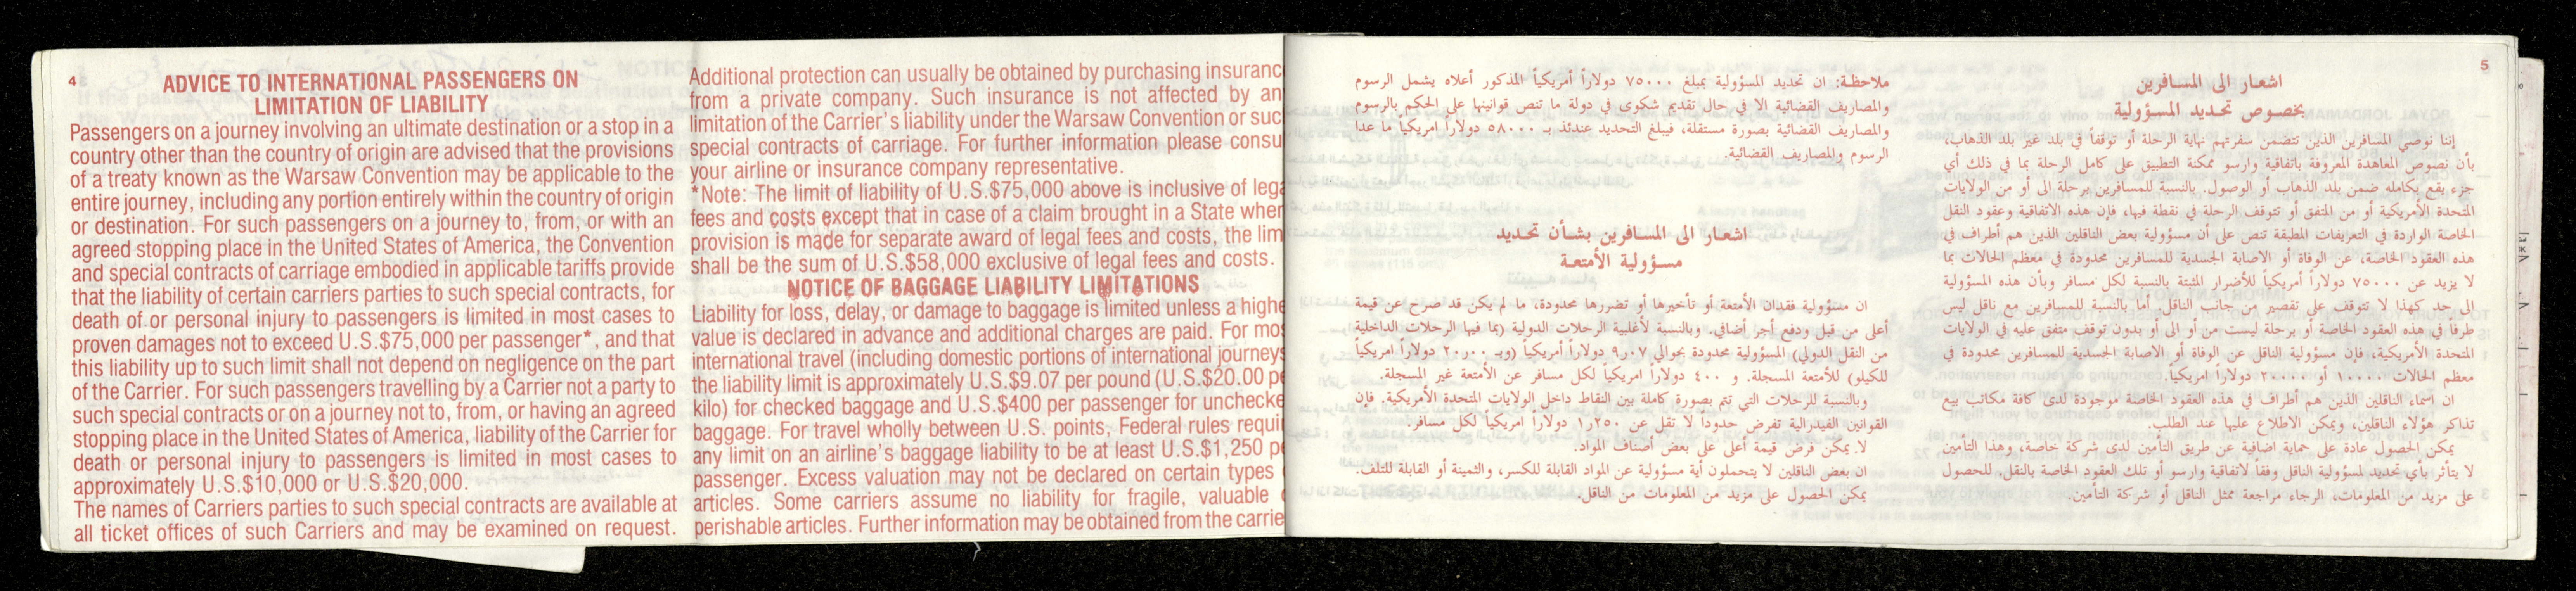 4
ADVICE TO INTERNATIONAL PASSENGERS ON
LIMITATION OF LIABILITY
Passengers on a journey involving an ultimate destination or a stop in a
country other than the country of origin are advised that the provisions
of a treaty known as the Warsaw Convention may be applicable to the
entire journey, including any portion entirely within the country of origin
or destination. For such passengers on a journey to, from, or with an
agreed stopping place in the United States of America, the Convention
and special contracts of carriage embodied in applicable tariffs provide
that the liability of certain carriers parties to such special contracts, for
death of or personal injury to passengers is limited in most cases to
proven damages not to exceed U.S.$75,000 per passenger*, and that
this liability up to such limit shall not depend on negligence on the part
of the Carrier. For such passengers travelling by a Carrier not a party to
such special contracts or on a journey not to, from, or having an agreed
stopping place in the United States of America, liability of the Carrier for
death or personal injury to passengers is limited in most cases to
approximately U.S.$10,000 or U.S.$20,000.
The names of Carriers parties to such special contracts are available at
all ticket offices of such Carriers and may be examined on request.
Additional protection can usually be obtained by purchasing insuranc
from a private company. Such insurance is not affected by an
limitation of the Carrier's liability under the Warsaw Convention or suc
special contracts of carriage. For further information please consu
your airline or insurance company representative.
*Note: The limit of liability of U.S.$75,000 above is inclusive of lega
fees and costs except that in case of a claim brought in a State wher
provision is made for separate award of legal fees and costs, the lim
shall be the sum of U.S.$58,000 exclusive of legal fees and costs.
NOTICE OF BAGGAGE LIABILITY LIMITATIONS
Liability for loss, delay, or damage to baggage is limited unless a highe
value is declared in advance and additional charges are paid. For mos
international travel (including domestic portions of international journeys
the liability limit is approximately U.S.$9.07 per pound (U.S.$20.00 pe
kilo) for checked baggage and U.S.$400 per passenger for unchecke
baggage. For travel wholly between U.S. points, Federal rules requir
any limit on an airline's baggage liability to be at least U.S.$1,250 p
passenger. Excess valuation may not be declared on certain types
articles. Some carriers assume no liability for fragile, valuable
perishable articles. Further information may be obtained from the carrie
5
اشعار الى المسافرين
بخصوص تحديد المسؤولية
إننا نوصي المسافرين الذين تتضمن سفرتهم نهاية الرحلة أو توقفاً في بلد غير بلد الذهاب،
بأن نصوص المعاهدة المعروفة باتفاقية وارسو ممكنة التطبيق على كامل الرحلة بما في ذلك أي
جزء يقع بكامله ضمن بلد الذهاب أو الوصول. بالنسبة للمسافرين برحلة الى أو من الولايات
المتحدة الأمريكية أو من المتفق أو تتوقف الرحلة في نقطة فيها، فإن هذه الاتفاقية وعقود النقل
الخاصة الواردة في التعريفات المطبقة تنص على أن مسؤولية بعض الناقلين الذين هم أطراف في
هذه العقود الخاصة، عن الوفاة أو الاصابة الجسدية للمسافرين محدودة في معظم الحالات بما
لا يزيد عن ٧٥٠٠٠ دولاراً أمريكياً للأضرار المثبتة بالنسبة لكل مسافر وبأن هذه المسؤولية
الى حد كهذا لا تتوقف على تقصير من جانب الناقل. أما بالنسبة للمسافرين مع ناقل ليس
طرفاً في هذه العقود الخاصة أو برحلة ليست من أو الى أو بدون توقف متفق عليه في الولايات
المتحدة الأمريكية، فإن مسؤولية الناقل عن الوفاة أو الاصابة الجسدية للمسافرين محدودة في
معظم الحالات ١٠٠٠٠ أو ٢٠٠٠٠ دولاراً امريكياً.
ان أسماء الناقلين الذين هم أطراف في هذه العقود الخاصة موجودة لدى كافة مكاتب بيع
تذاكر هؤلاء الناقلين، ويمكن الاطلاع عليها عند الطلب.
يمكن الحصول عادة على حماية اضافية عن طريق التأمين لدى شركة خاصة، وهذا التأمين
لا يتأثر بأي تحديد لمسؤولية الناقل وفقاً لاتفاقية وارسو أو تلك العقود الخاصة بالنقل. للحصول
على مزيد من المعلومات، الرجاء مراجعة ممثل الناقل أو شركة التأمين.
ملاحظة: ان تحديد المسؤولية بمبلغ ٧٥٠٠٠ دولاراً أمريكياً المذكور أعلاه يشمل الرسوم
والمصاريف القضائية الا في حال تقديم شكوى في دولة ما تنص قوانينها على الحكم بالرسوم
والمصاريف القضائية بصورة مستقلة، فيبلغ التحديد عندئذ بـ ٥٨٠٠٠ دولاراً امريكياً ما عدا
الرسوم والمصاريف القضائية.
اشعار الى المسافرين بشأن تحديد
مسؤولية الأمتعة
ان مسؤولية فقدان الأمتعة أو تأخيرها أو تضررها محدودة، ما لم يكن قد صرح عن قيمة
أعلى من قبل ودفع أجر أضافي. وبالنسبة لأغلبية الرحلات الدولية (بما فيها الرحلات الداخلية
من النقل الدولي) المسؤولية محدودة بحوالي ٩٫٠٧ دولاراً أمريكياً (وبـ ٢٠٫٠٠ دولاراً امريكياً
للكيلو) للأمتعة المسجلة. و ٤٠٠ دولاراً امريكياً لكل مسافر عن الأمتعة غير المسجلة.
وبالنسبة للرحلات التي تتم بصورة كاملة بين النقاط داخل الولايات المتحدة الأمريكية. فإن
القوانين الفيدرالية تفرض حدوداً لا تقل عن ١٫٢٥٠ دولاراً أمريكياً لكل مسافر.
لا يمكن فرض قيمة أعلى على بعض أصناف المواد.
ان بعض الناقلين لا يتحملون أية مسؤولية عن المواد القابلة للكسر، والثمينة أو القابلة للتلف.
يمكن الحصول على مزيد من المعلومات من الناقل.